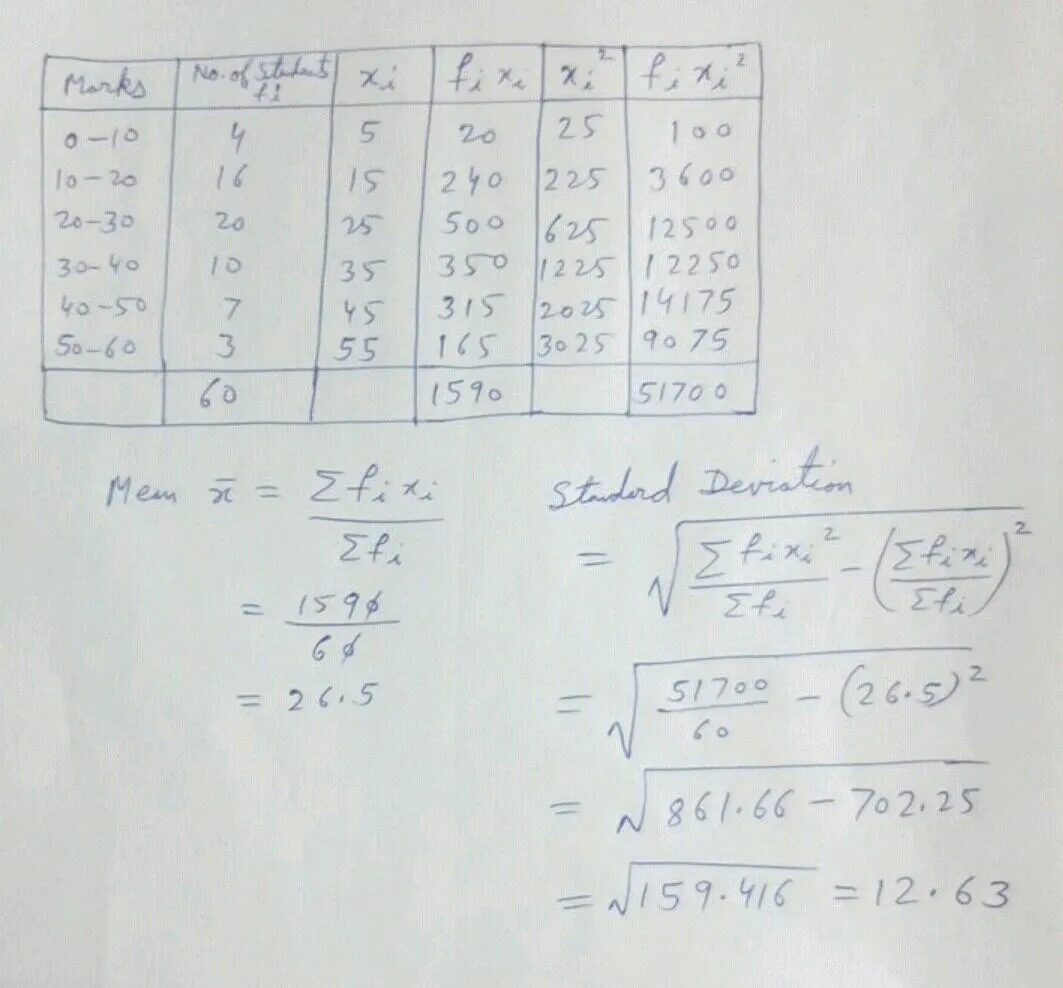 Marks No. of Students fi xi fi xi xi² fi xi²
0-10 4 5 20 25 100
10-20 16 15 240 225 3600
20-30 20 25 500 625 12500
30-40 10 35 350 1225 12250
40-50 7 45 315 2025 14175
50-60 3 55 165 3025 9075
60 1590 51700
Mean x̄ = Σfi xi / Σfi
= 1590 / 60
= 26.5
Standard Deviation
= √(Σfi xi² / Σfi - (Σfi xi / Σfi)²)
= √(51700 / 60 - (26.5)²)
= √(861.66 - 702.25)
= √159.416 = 12.63